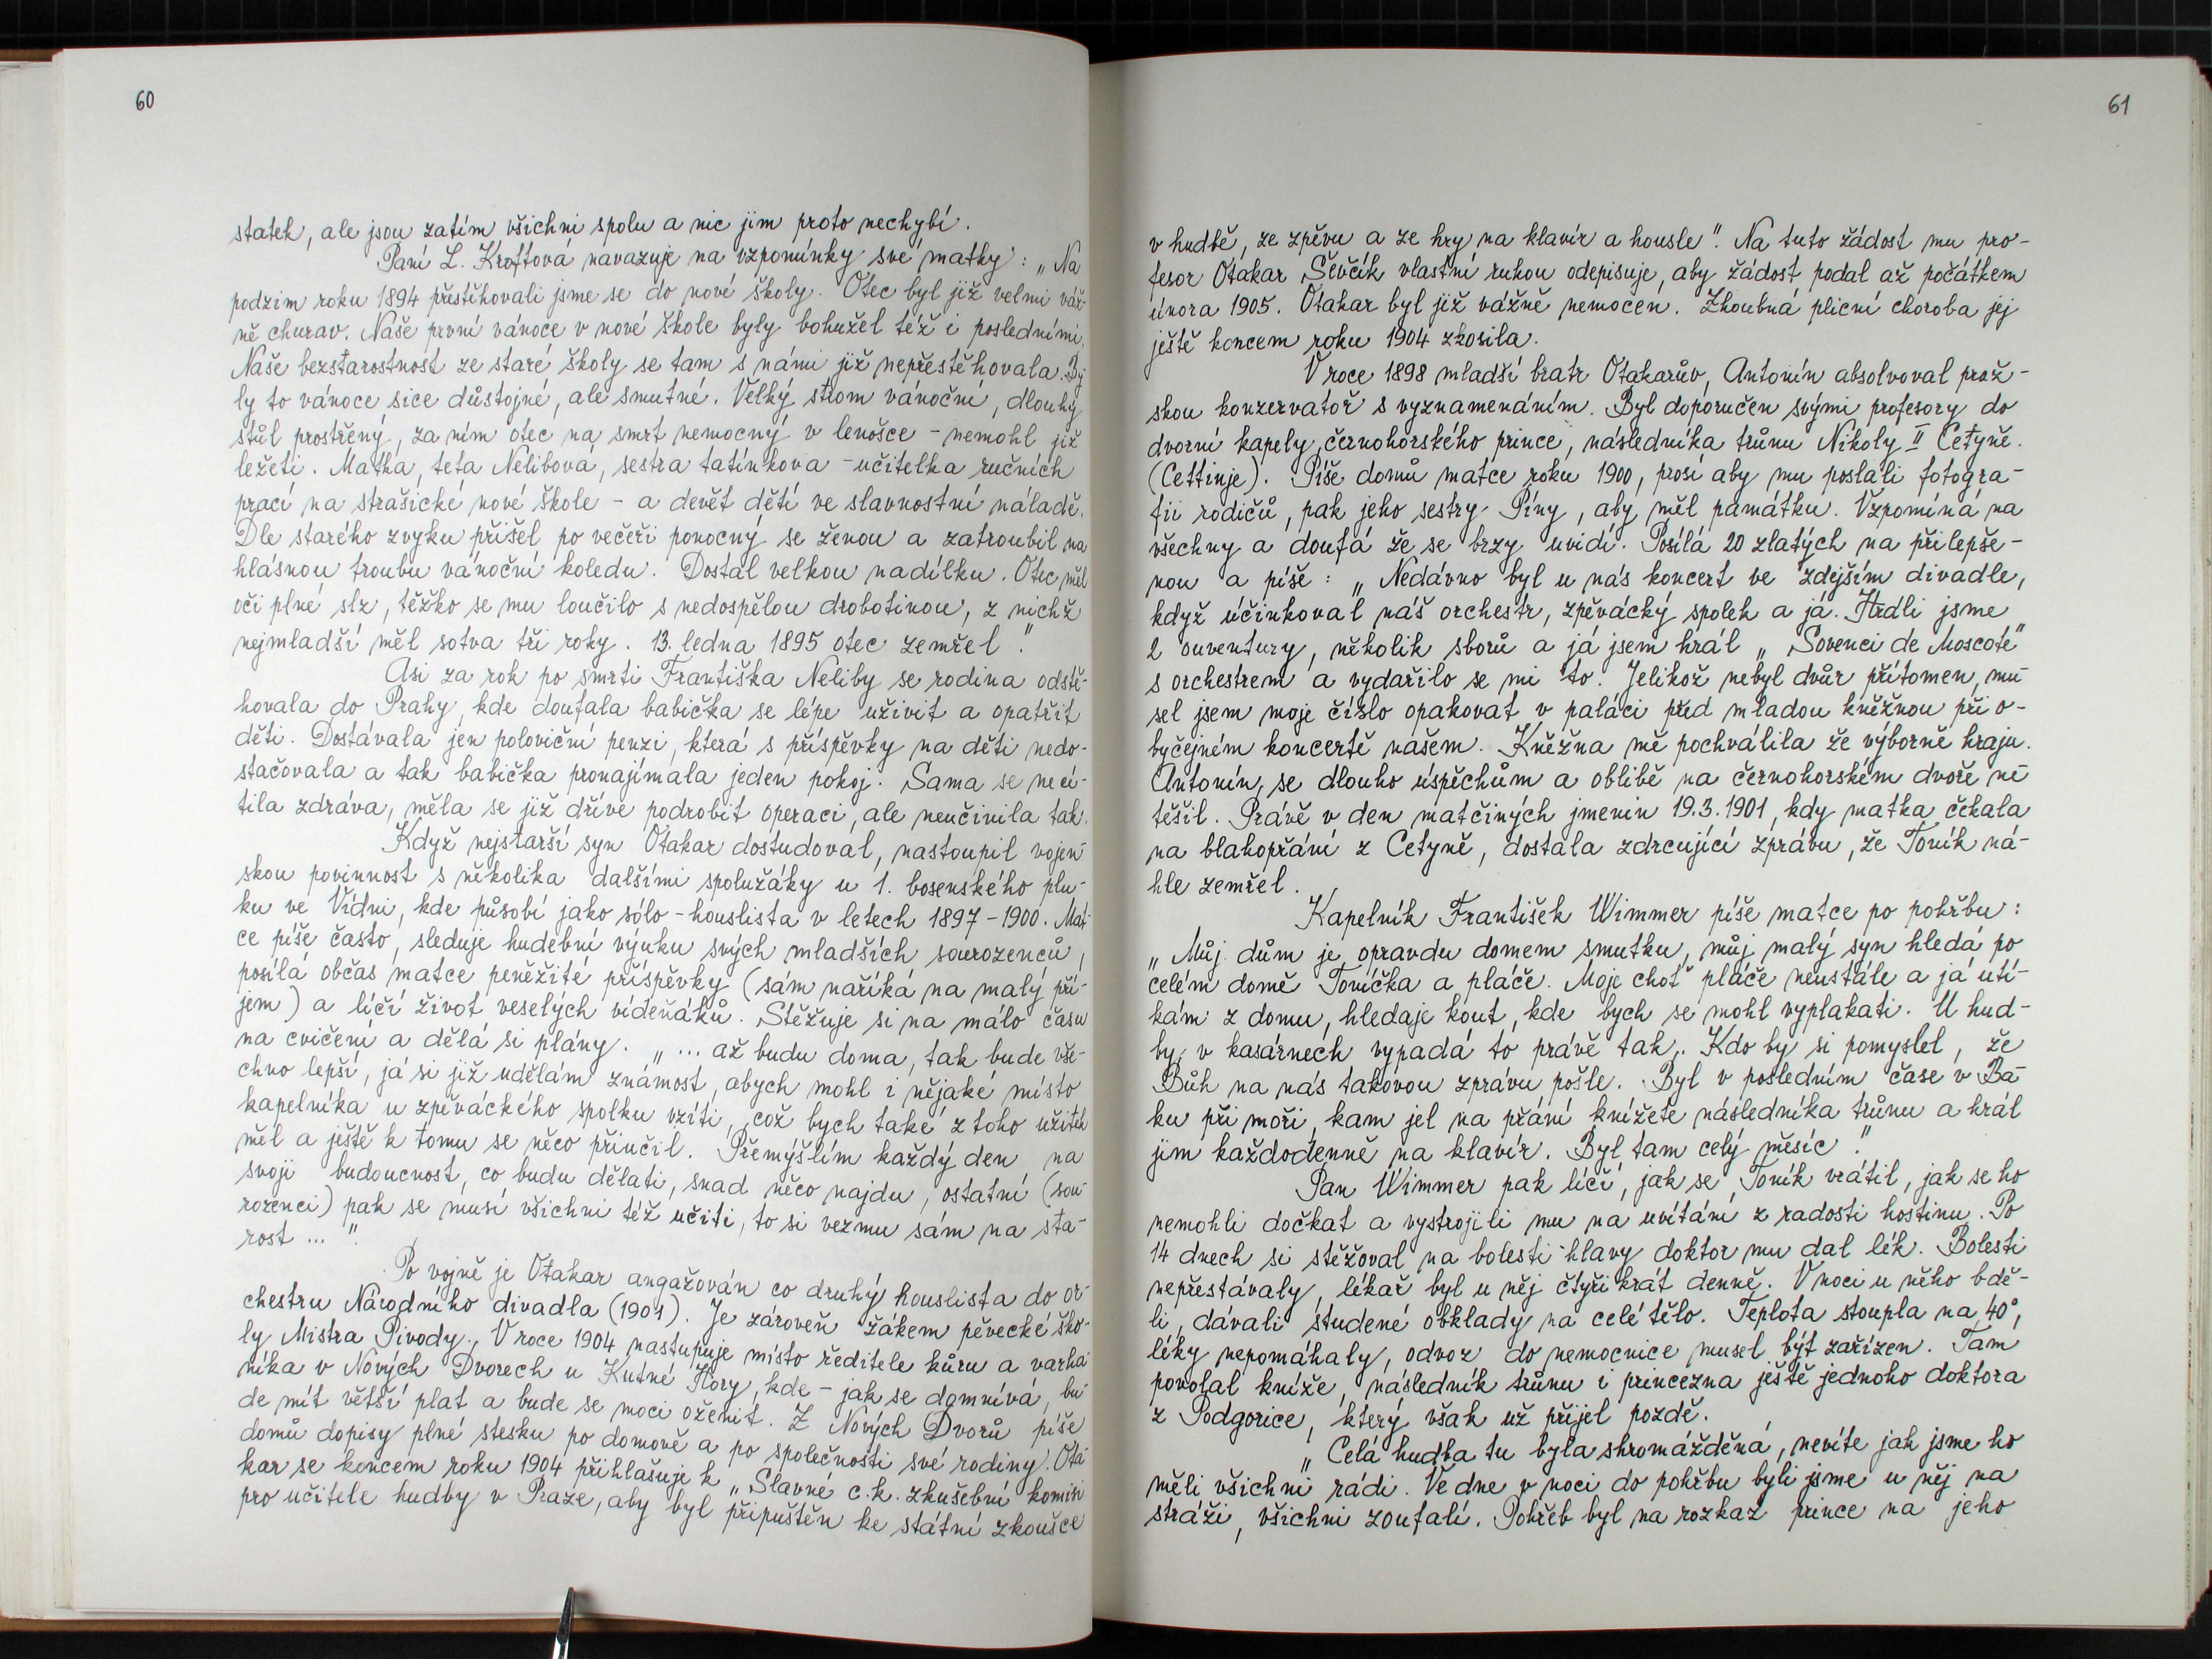 60
statek, ale jsou zatím všichni spolu a nic jim proto nechybí.
Paní L. Kroftová navazuje na vzpomínky své matky: „Na
podzim roku 1894 přestěhovali jsme se do nové školy. Otec byl již velmi váž-
ně churav. Naše první vánoce v nové škole byly bohužel též i posledními.
Naše bezstarostnost ze staré školy se tam s námi již nepřestěhovala. By-
ly to vánoce sice důstojné, ale smutné. Velký strom vánoční, dlouhý
stůl prostřený, za ním otec na smrt nemocný v lenošce - nemohl již
ležeti. Matka, teta Nelibová, sestra tatínkova - učitelka ručních
prací na strašické nové škole - a devět dětí ve slavnostní náladě.
Dle starého zvyku přišel po večeři ponocný se ženou a zatroubil na
hlásnou troubu vánoční koledu. Dostal velkou nadílku. Otec měl
oči plné slz, těžko se mu loučilo s nedospělou drobotinou, z nichž
nejmladší měl sotva tři roky. 13. ledna 1895 otec zemřel."
Asi za rok po smrti Františka Neliby se rodina odstě-
hovala do Prahy, kde doufala babička se lépe uživit a opatřit
děti. Dostávala jen poloviční penzi, která s příspěvky na děti nedo-
stačovala a tak babička pronajímala jeden pokoj. Sama se necí-
tila zdráva, měla se již dříve podrobit operaci, ale neučinila tak.
Když nejstarší syn Otakar dostudoval, nastoupil vojen-
skou povinnost s několika dalšími spolužáky u 1. bosenského plu-
ku ve Vídni, kde působí jako sólo-houslista v letech 1897-1900. Mat-
ce píše často, sleduje hudební výuku svých mladších sourozenců,
posílá občas matce peněžité příspěvky (sám naříká na malý pří-
jem) a líčí život veselých vídeňáků. Stěžuje si na málo času
na cvičení a dělá si plány. „... až budu doma, tak bude vše-
chno lepší, já si již udělám známost, abych mohl i nějaké místo
kapelníka u zpěváckého spolku vzíti, což bych také z toho užitek
měl a ještě k tomu se něco přiučil. Přemýšlím každý den na
svoji budoucnost, co budu dělati, snad něco najdu, ostatní (sou-
rozenci) pak se musí všichni též učiti, to si vezmu sám na sta-
rost ...".
Po vojně je Otakar angažován co druhý houslista do or-
chestru Národního divadla (1901). Je zároveň žákem pěvecké ško-
ly Mistra Pivody. V roce 1904 nastupuje místo ředitele kůru a varha-
níka v Nových Dvorech u Kutné Hory, kde - jak se domnívá, bu-
de mít větší plat a bude se moci oženit. Z Nových Dvorů píše
domů dopisy plné stesku po domově a po společnosti své rodiny. Ota-
kar se koncem roku 1904 přihlašuje k „Slavné c.k. zkušební komisi
pro učitele hudby v Praze, aby byl připuštěn ke státní zkoušce
61
v hudbě, ze zpěvu a ze hry na klavír a housle". Na tuto žádost mu pro-
fesor Otakar Ševčík vlastní rukou odepisuje, aby žádost podal až počátkem
února 1905. Otakar byl již vážně nemocen. Zhoubná plicní choroba jej
ještě koncem roku 1904 zkosila.
V roce 1898 mladší bratr Otakarův, Antonín absolvoval praž-
skou konzervatoř s vyznamenáním. Byl doporučen svými profesory do
dvorní kapely černohorského prince, následníka trůnu Nikoly II Cetyně.
(Cettinje). Píše domů matce roku 1900, prosí aby mu poslali fotogra-
fii rodičů, pak jeho sestry Píny, aby měl památku. Vzpomíná na
všechny a doufá že se brzy uvidí. Posílá 20 zlatých na přilepše-
nou a píše: „Nedávno byl u nás koncert ve zdejším divadle,
když účinkoval náš orchestr, zpěvácký spolek a já. Hráli jsme
2 ouventury, několik sborů a já jsem hrál „Sovenci de Moscote"
s orchestrem a vydařilo se mi to. Jelikož nebyl dvůr přítomen, mu-
sel jsem moje číslo opakovat v paláci před mladou kněžnou při o-
byčejném koncertě našem. Kněžna mě pochválila že výborně hraju.
Antonín, se dlouho úspěchům a oblibě na černohorském dvoře ne-
těšil. Právě v den matčiných jmenin 19.3.1901, kdy matka čekala
na blahopřání z Cetyně, dostala zdrcující zprávu, že Toník ná-
hle zemřel.
Kapelník František Wimmer píše matce po pohřbu:
„Můj dům je opravdu domem smutku, můj malý syn hledá po
celém domě Toníčka a pláče. Moje choť pláče neustále a já utí-
kám z domu, hledaje kout, kde bych se mohl vyplakati. U hud-
by v kasárnech vypadá to právě tak. Kdo by si pomyslel, že
Bůh na nás takovou zprávu pošle. Byl v posledním čase v Ba-
ku při moři, kam jel na přání knížete následníka trůnu a hrál
jim každodenně na klavír. Byl tam celý měsíc."
Pan Wimmer pak líčí, jak se Toník vrátil, jak se ho
nemohli dočkat a vystrojili mu na uvítání z radosti hostinu. Po
14 dnech si stěžoval na bolesti hlavy doktor mu dal lék. Bolesti
nepřestávaly, lékař byl u něj čtyřikrát denně. V noci u něho bdě-
li, dávali studené obklady na celé tělo. Teplota stoupla na 40°,
léky nepomáhaly, odvoz do nemocnice musel být zařízen. Tam
povolal kníže, následník trůnu i princezna ještě jednoho doktora
z Podgorice, který však už přijel pozdě.
„Celá hudba tu byla shromážděná, nevíte jak jsme ho
měli všichni rádi. Ve dne v noci do pohřbu byli jsme u něj na
stráži, všichni zoufalí. Pohřeb byl na rozkaz prince na jeho